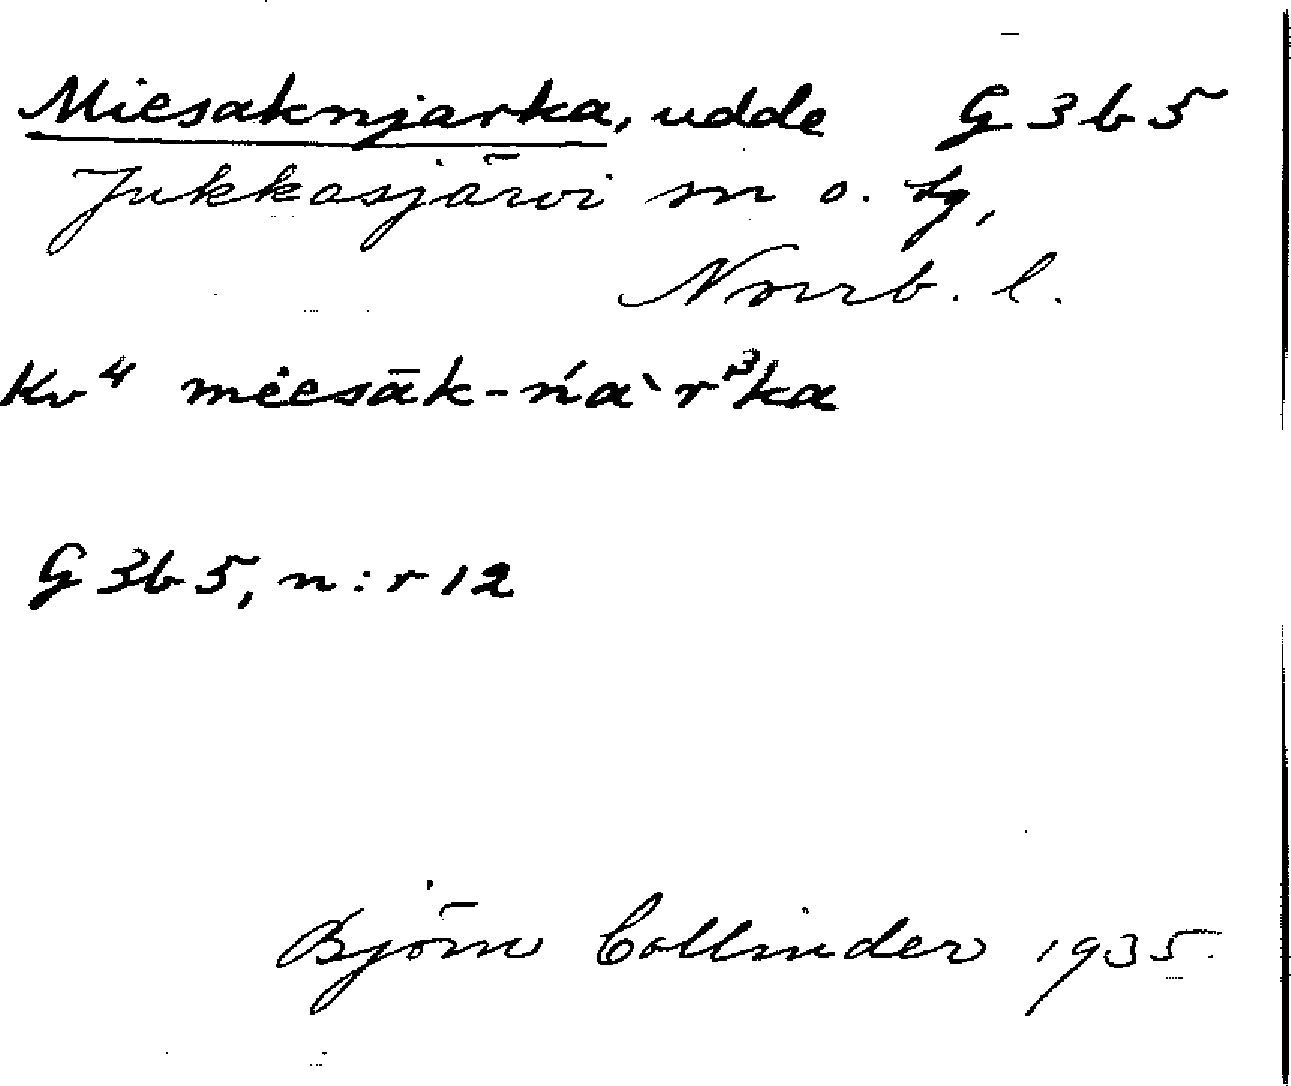 Miesaknjarka, udde G 3 b 5
Jukkasjärvi sn o. tg,
Norrb. l.
Kv⁴ mėesāk-ńa`r³ka
G 3b 5, n:r 12
Björn Collinder 1935.